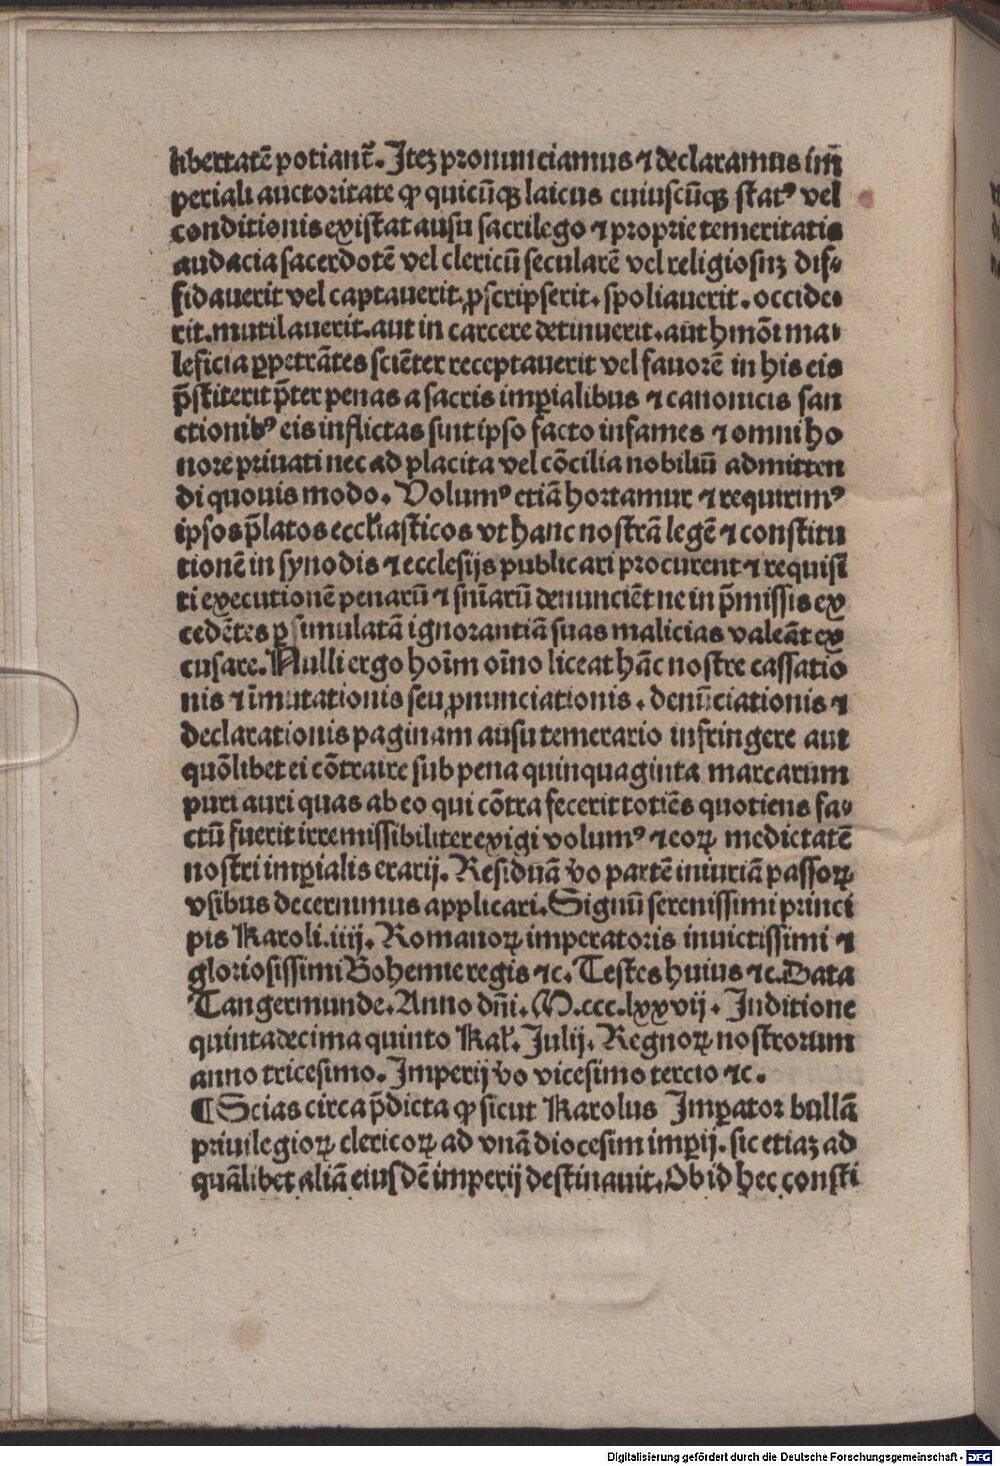 libertatē potiant᷑. Itez pronunciamus ⁊ declaramus im̄
periali auctoritate ꝙ quicūqꝫ laicus cuiuscūqꝫ statꝰ vel
conditionis existat ausu sacrilego ⁊ proprie temeritatis
audacia sacerdotē vel clericū secularē vel religiosuꝫ dif⸗
fidauerit vel captauerit, ꝓscripserit. spoliauerit. occide⸗
rit. mutilauerit. aut in carcere detinuerit. aut hmōi ma⸗
leficia ꝑpetrātes sciēter receptauerit vel fauorē in his eis
p̄stiterit p̄ter penas a sacris imꝑialibus ⁊ canonicis san
ctionibꝰ eis inflictas sint ipso facto infames ⁊ omni ho
nore priuati nec ad placita vel cōcilia nobiliū admitten
di quouis modo. Volumꝰ etiā hortamur ⁊ requirimꝰ
ipsos p̄latos eccl̄iasticos vt hanc nostrā legē ⁊ constitu
tionē in synodis ⁊ ecclesijs publicari procurent ⁊ requisi
ti executionē penarū ⁊ sn̄iarū denunciēt ne in p̄missis ex
cedētes ꝑ simulatā ignorantiā suas malicias valeāt ex
cusare. Nulli ergo hoīm oīno liceat hāc nostre cassatio
nis ⁊ īmutationis seu ꝓnunciationis. denūciationis ⁊
declarationis paginam ausu temerario infringere aut
quōlibet ei cōtraire sub pena quinquaginta marcarum
puri auri quas ab eo qui cōtra fecerit totiēs quotiens fa⸗
ctū fuerit irremissibiliter exigi volumꝰ ⁊ eoꝝ medietatē
nostri imꝑialis erarij. Residuā v̄o partē iniuriā passoꝝ
vsibus decernimus applicari. Signū serenissimi princi
pis Karoli. iiij. Romanoꝝ imperatoris inuictissimi ⁊
gloriosissimi Bohemie regis ⁊c. Testes huius ⁊c. Data
Tangermunde. Anno dn̄i. M.ccc.lxxvij. Inditione
quintadecima quinto Kal̄. Julij. Regnoꝝ nostrorum
anno tricesimo. Imperij v̄o vicesimo tercio ⁊c.
¶ Scias circa p̄dicta ꝙ sicut Karolus Imꝑator bullā
priuilegioꝝ clericoꝝ ad vnā diocesim imꝑij. sic etiaꝫ ad
quālibet aliā eiusdē imperij destinauit. Ob id hec consti
Digitalisierung gefördert durch die Deutsche Forschungsgemeinschaft - DFG